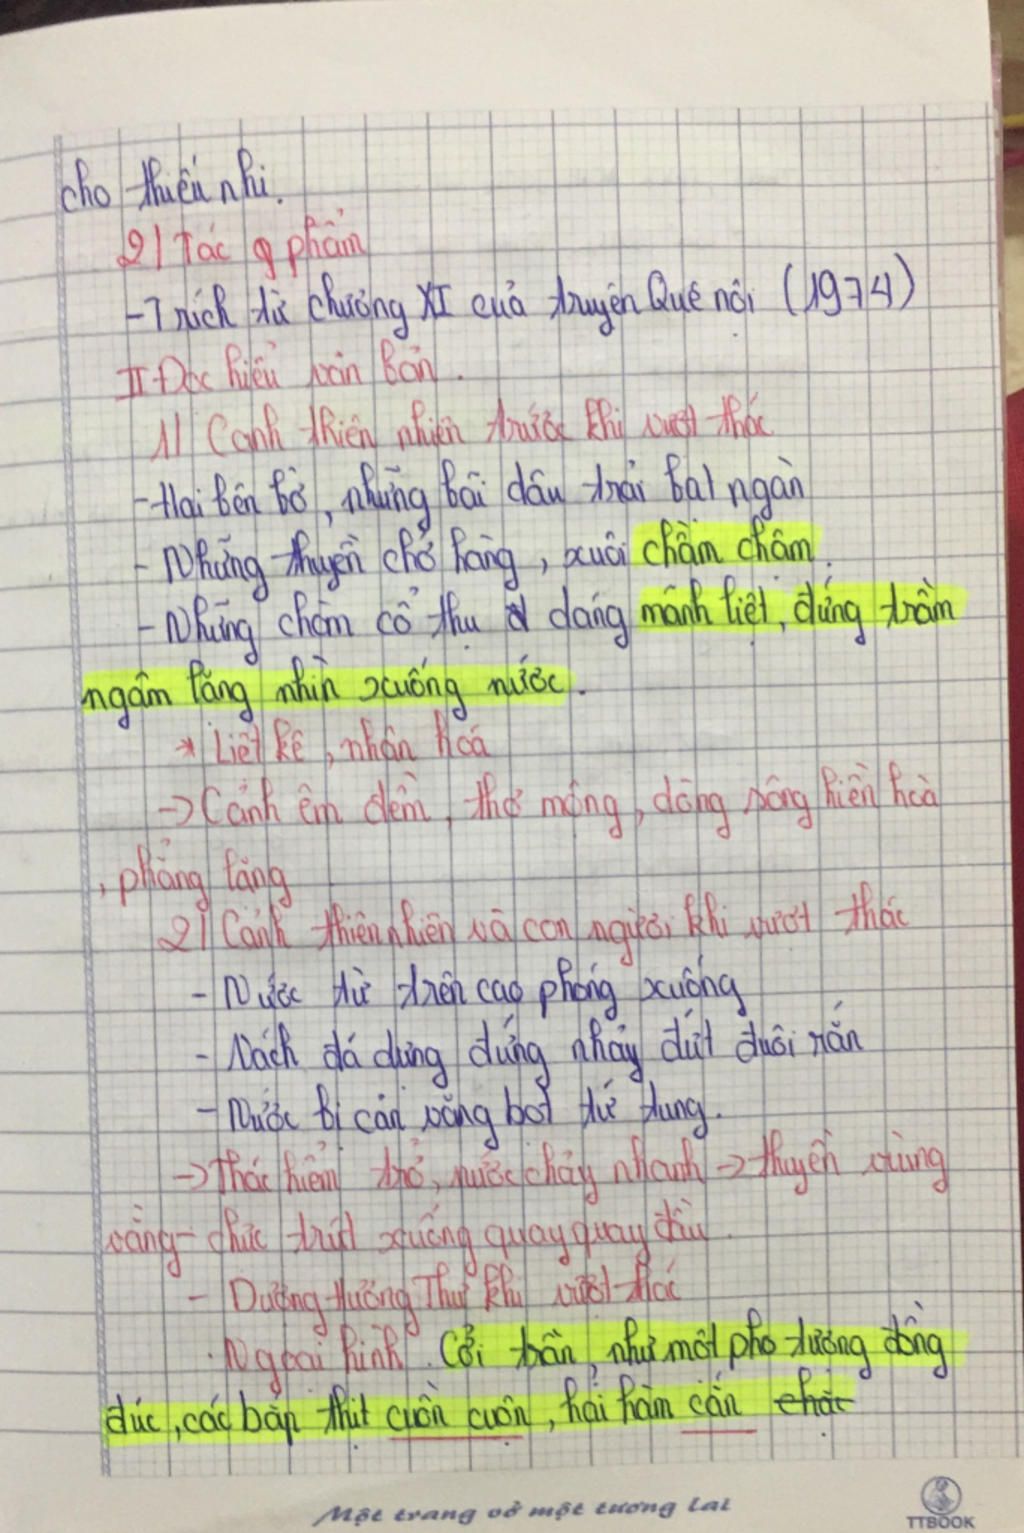 cho thiếu nhi.
2/ Tác phẩm
- Trích từ chương XI của truyện Quê nội (1974)
II. Đọc hiểu văn bản.
1/ Cảnh thiên nhiên trước khi vượt thác
- Hai bên bờ, những bãi dâu trải bạt ngàn
- Những thuyền chở hàng, xuôi chầm chậm.
- Những chòm cổ thụ dáng mãnh liệt, đứng trầm
ngâm lặng nhìn xuống nước.
* Liệt kê, nhân hoá
-> Cảnh êm đềm, thơ mộng, dòng sông hiền hoà
, phẳng lặng
2/ Cảnh thiên nhiên và con người khi vượt thác
- Nước từ trên cao phóng xuống
- Vách đá dựng đứng nhảy đứt đuôi rắn
- Nước bị cản văng bọt tứ tung.
-> Thác hiểm trở, nước chảy nhanh -> thuyền vùng
vằng chức trụt xuống quay quay đầu.
- Dượng Hương Thư khi vượt thác
. Ngoại hình. Cởi trần, như một pho tượng đồng
đúc, các bắp thịt cuồn cuộn, hai hàm cắn chặt
Một trang vở một tương lai
TTBOOK